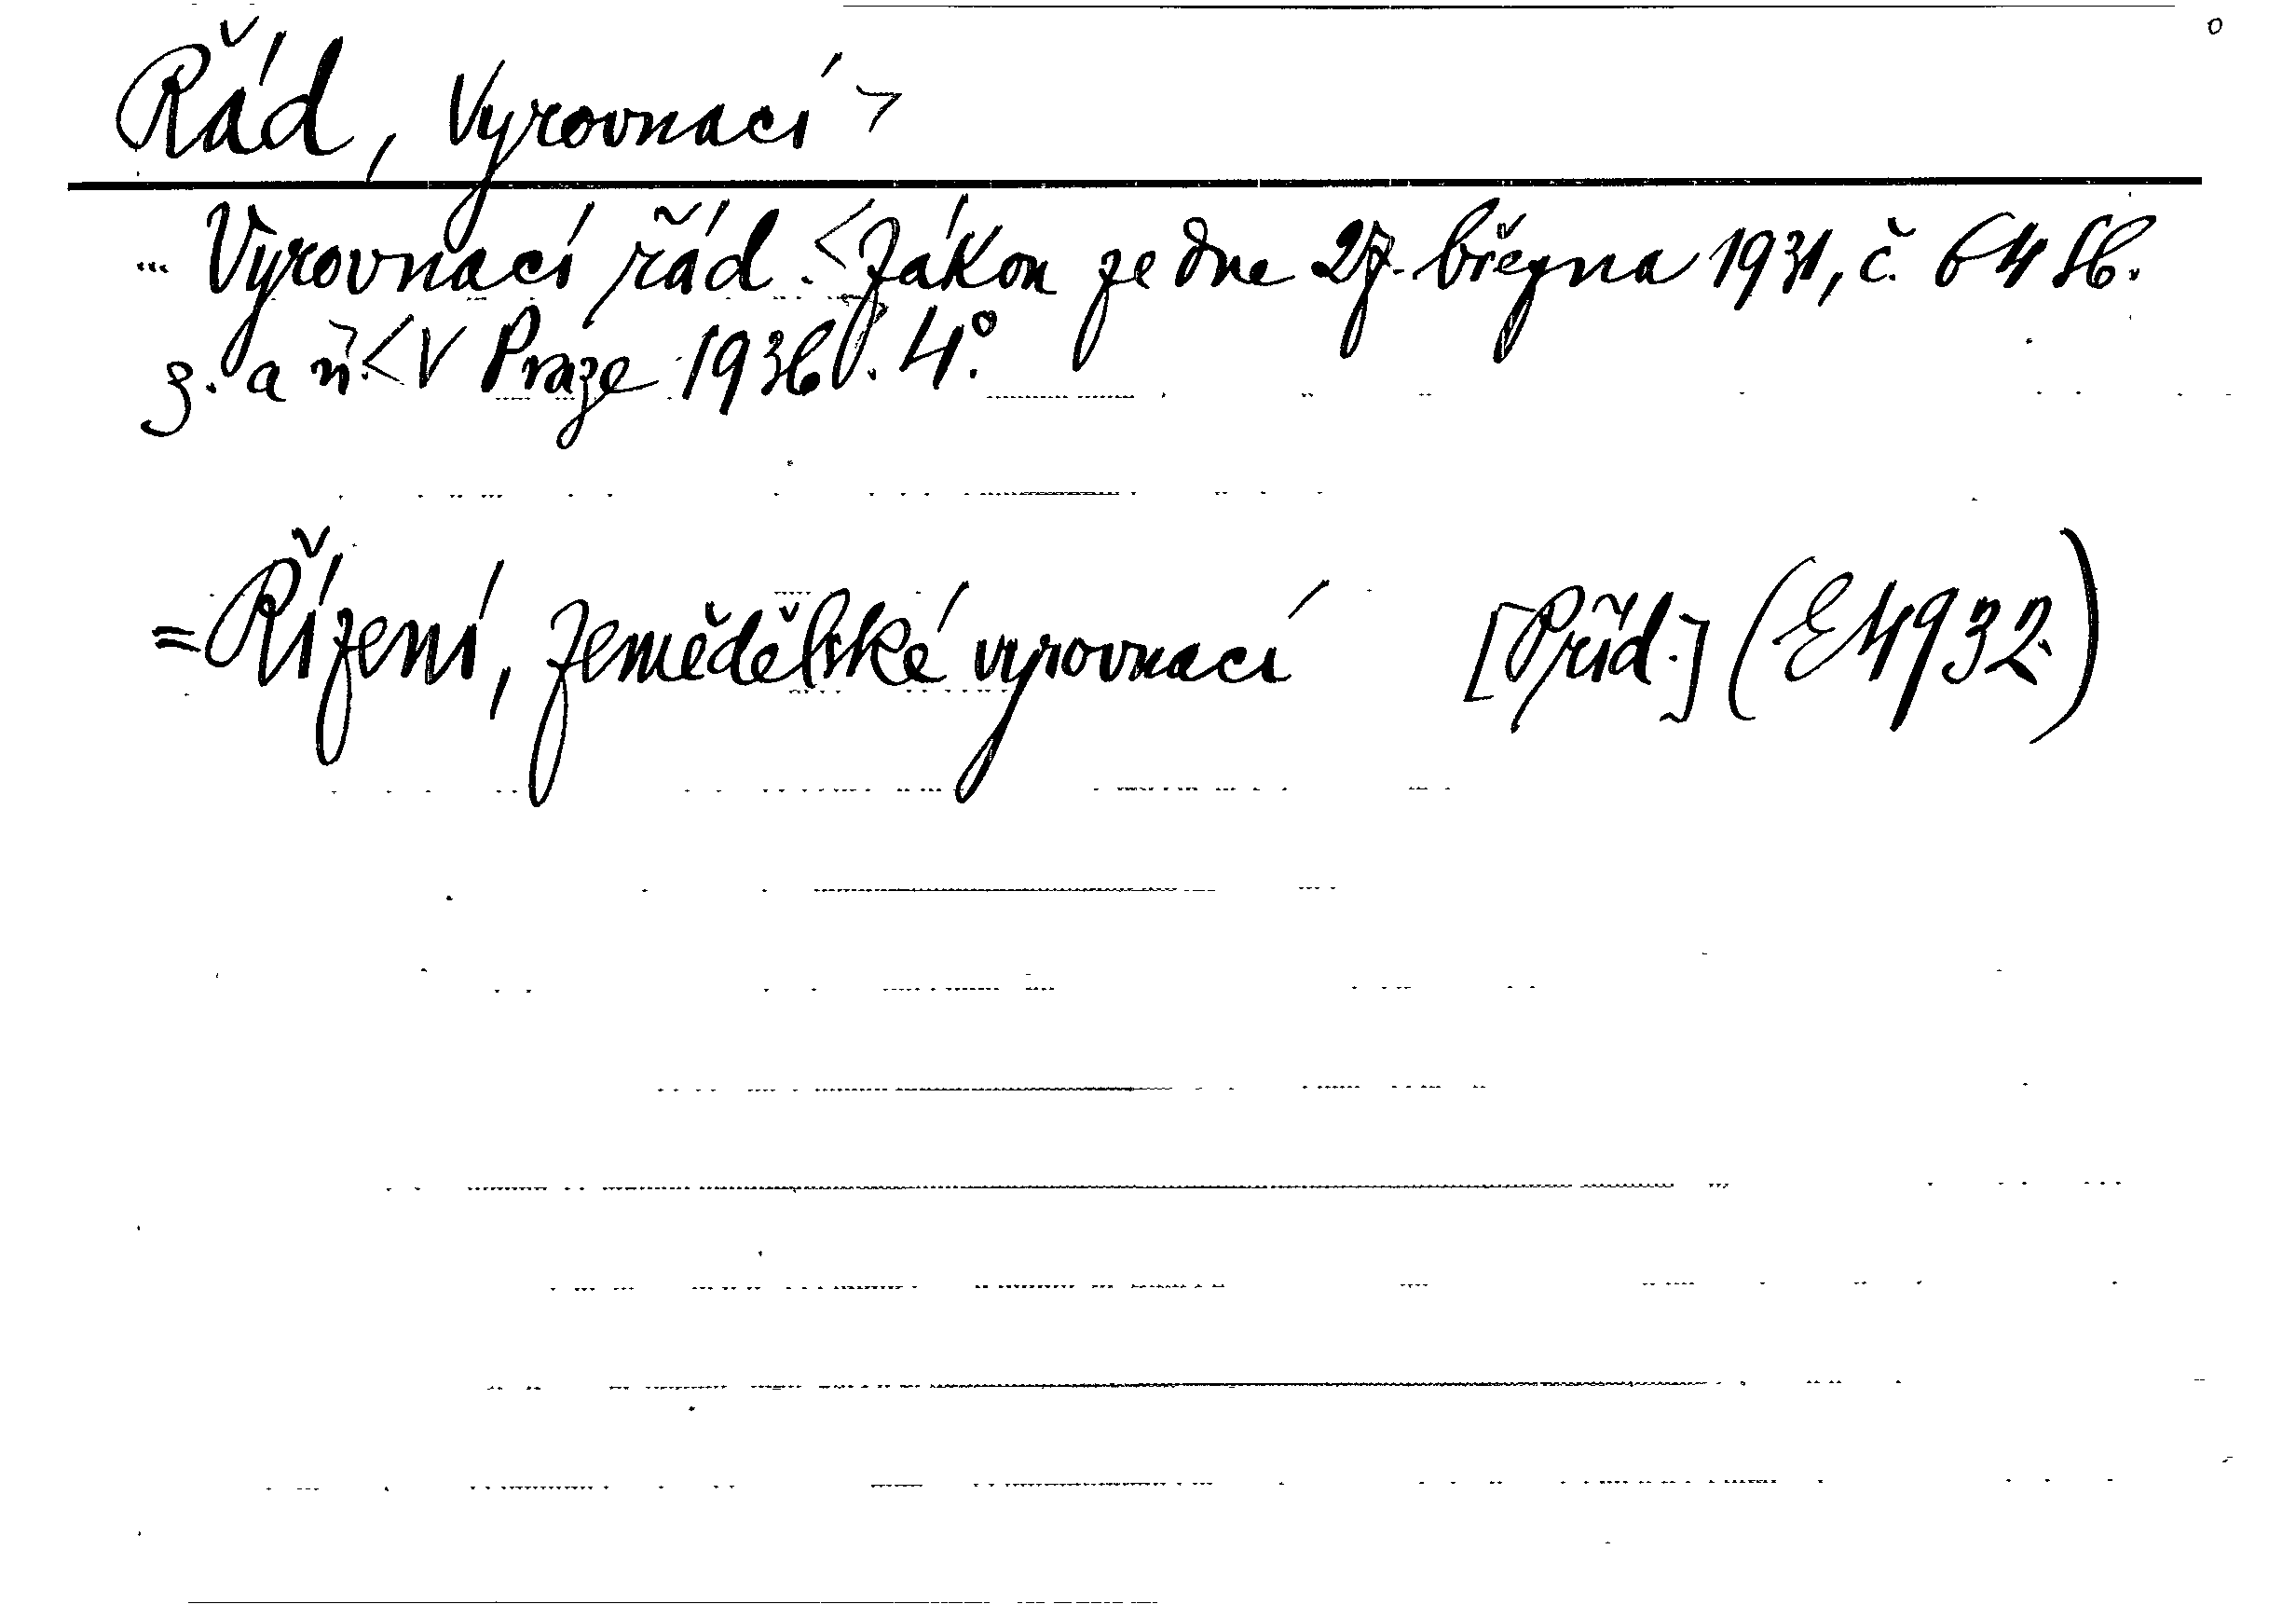 Řád, Vyrovnací
... Vyrovnací řád. Zákon ze dne 27. března 1931, č. 64 Sb.
z. a n. V Praze 1936. 4°.
= Řízení, zemědělské vyrovnací [Příd.] (E 4932.)